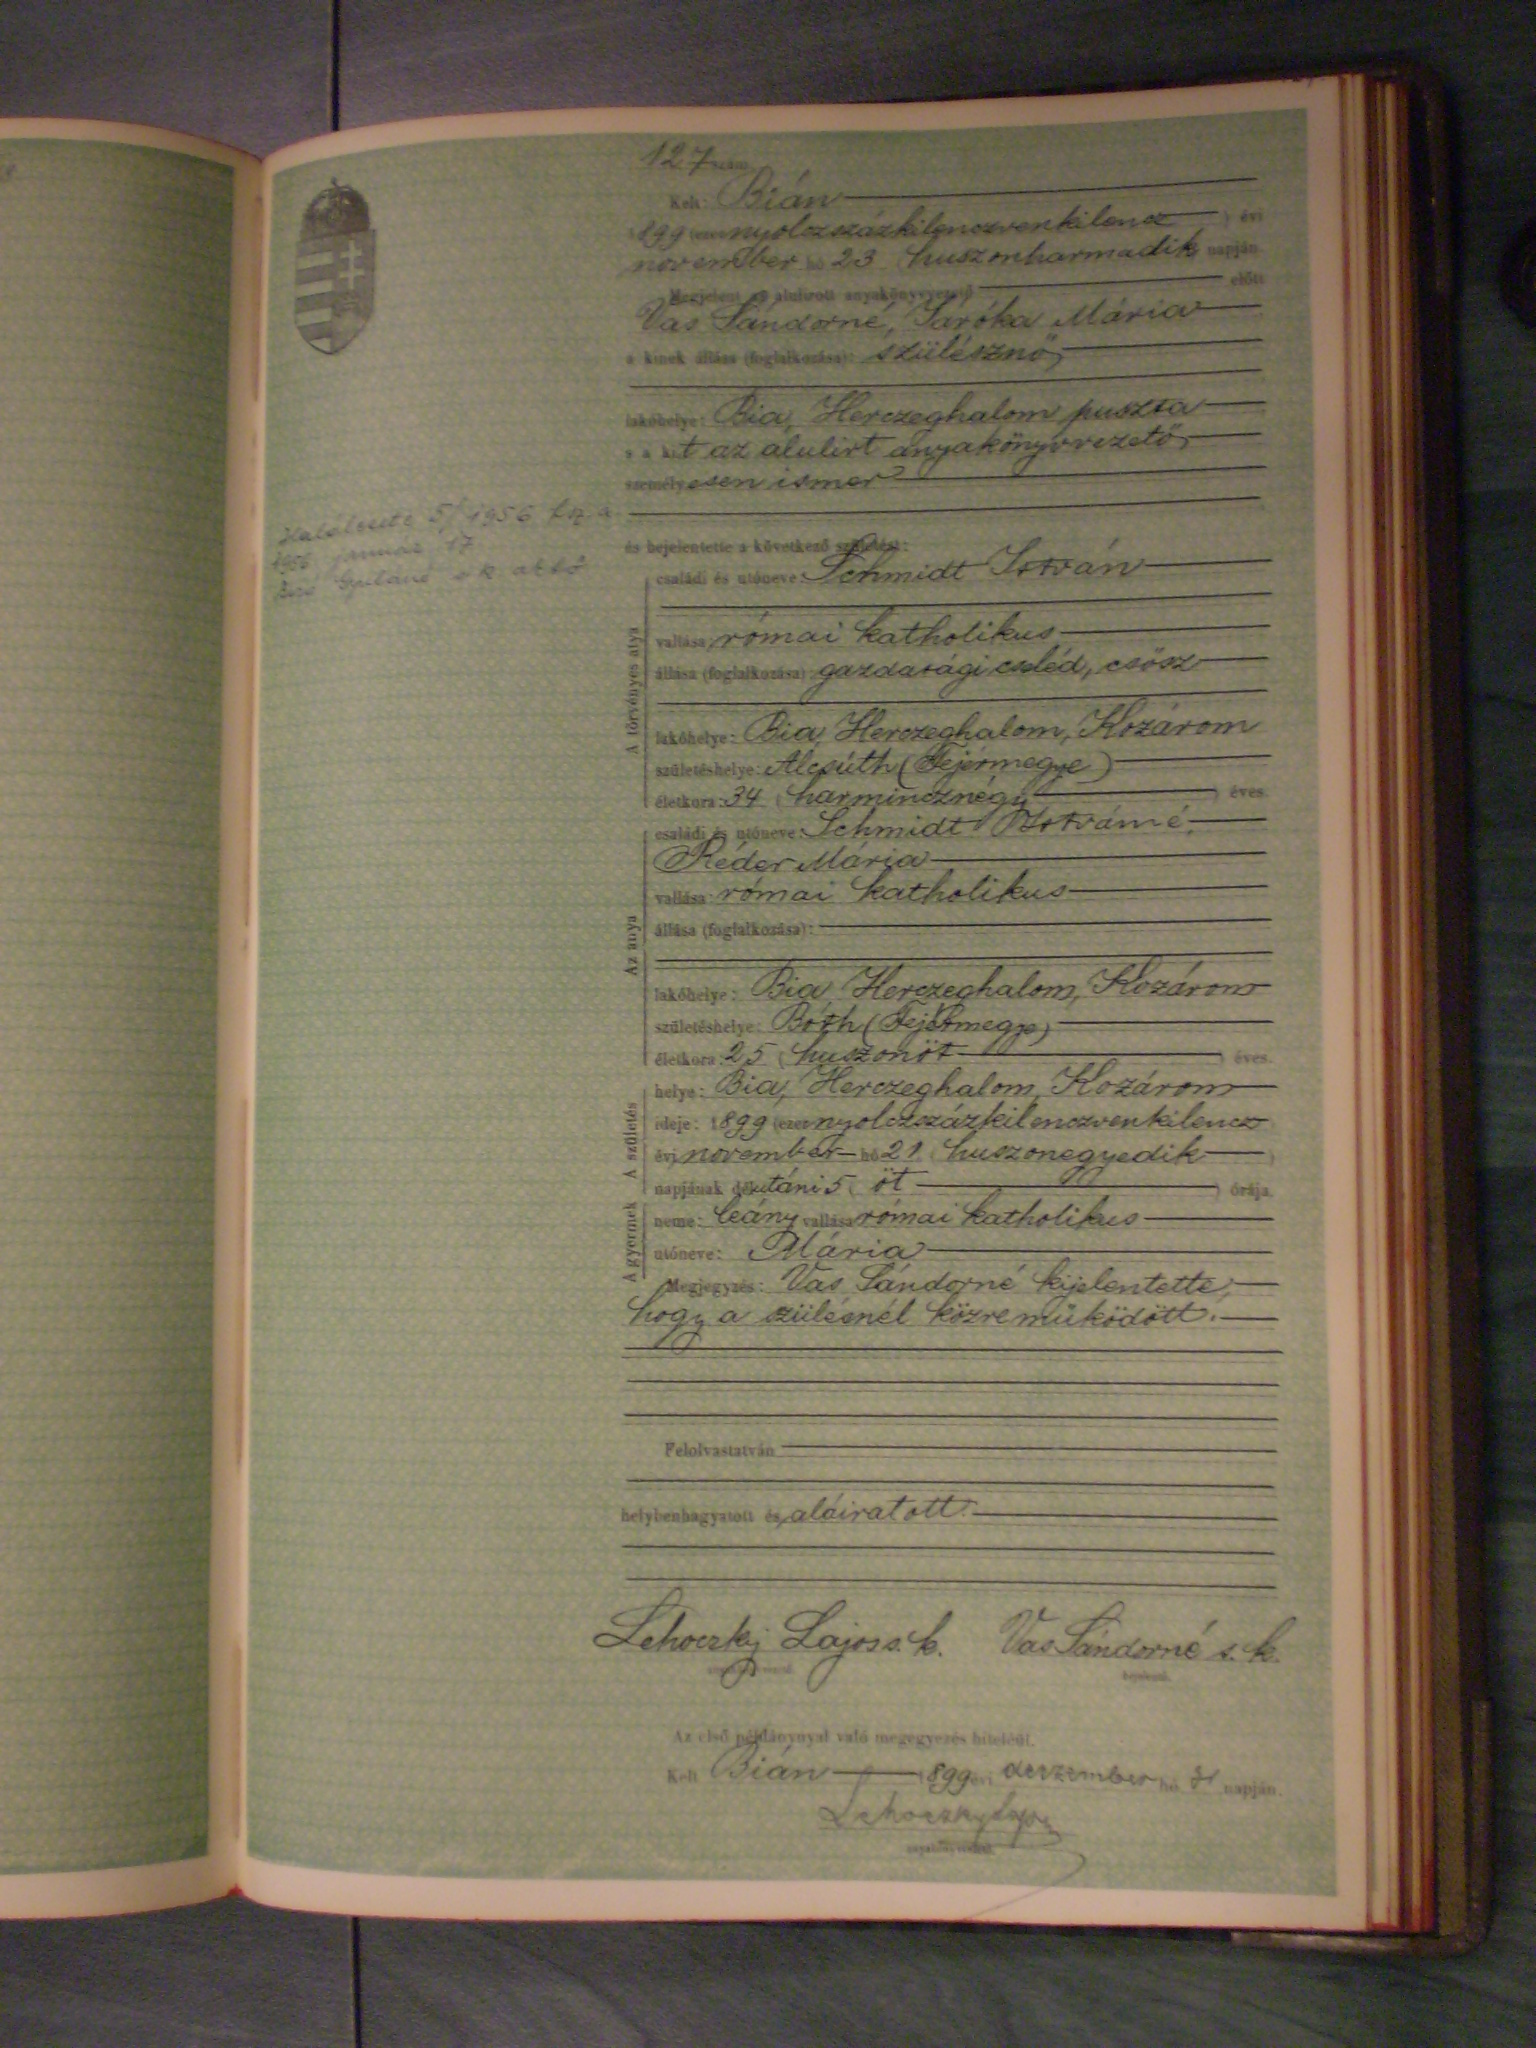 127 szám
Kelt: Bián
1899 (ezernyolczszázkilenczvenkilencz) évi
november hó 23 (huszonharmadik) napján.
Megjelent az alulirott anyakönyvvezető előtt
Vas Sándorné, Saróka Mária
a kinek állása (foglalkozása): szülésznő,
lakóhelye: Bia, Herczeghalom puszta
s a kit az alulirt anyakönyvvezető
személyesen ismer
és bejelentette a következő születést:
A törvényes atya
családi és utóneve: Schmidt István
vallása: római katholikus
állása (foglalkozása): gazdasági cseléd, csősz
lakóhelye: Bia, Herczeghalom, Kozárom
születéshelye: Alcsúth (Fejérmegye)
életkora: 34 (harmincznégy) éves.
Az anya
családi és utóneve: Schmidt Istvánné,
Réder Mária
vallása: római katholikus
állása (foglalkozása):
lakóhelye: Bia, Herczeghalom, Kozárom
születéshelye: Both (Fejérmegye)
életkora: 25 (huszonöt) éves.
A születés
helye: Bia, Herczeghalom, Kozárom
ideje: 1899 (ezernyolczszázkilenczvenkilencz
évi november hó 21 (huszonegyedik)
napjának délutáni 5 (öt) órája.
A gyermek
neme: leány vallása római katholikus
utóneve: Mária
Megjegyzés: Vas Sándorné kijelentette,
hogy a szülésnél közreműködött.
Felolvastatván
helybenhagyatott és aláiratott.
Lehoczky Lajos s. k. Vas Sándorné s. k.
anyakönyvvezető. bejelentő.
Az első példánynyal való megegyezés hiteléül.
Kelt Bián 1899 évi deczember hó 31 napján.
Lehoczky Lajos
anyakönyvvezető.
Halálesete 5/1956
1956 január 17